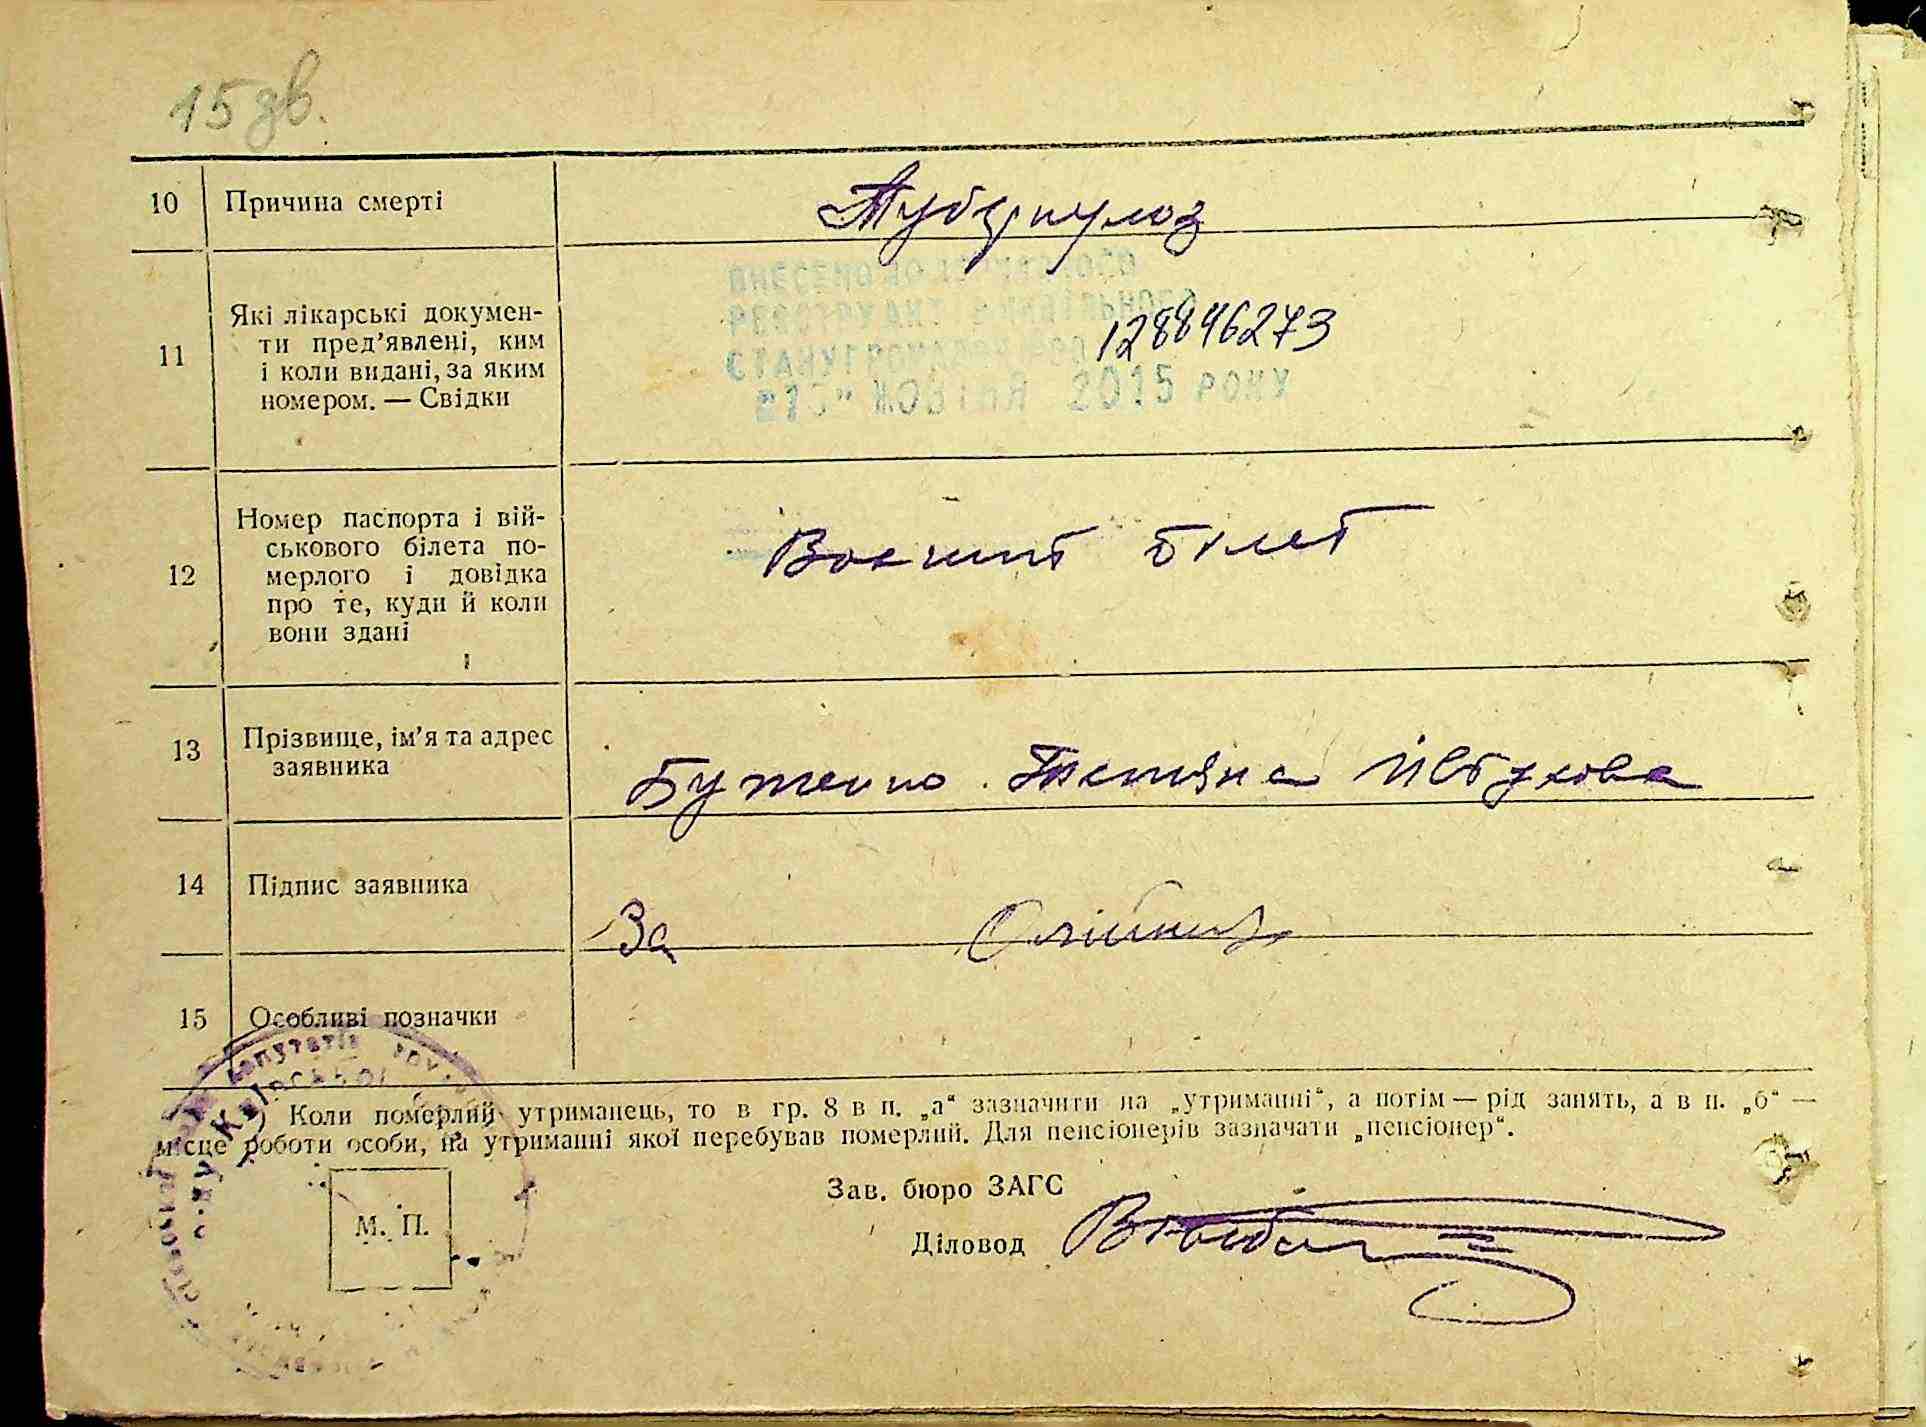 15 зв.
10 Причина смерті Туберкулоз
ВНЕСЕНО ДО ДЕРЖАВНОГО
РЕЄСТРУ АКТІВ ЦИВІЛЬНОГО
11 Які лікарські докумен-
ти пред’явлені, ким
і коли видані, за яким
номером. — Свідки
СТАНУ ГРОМАДЯН 128846273
ЖОВТНЯ 2015 РОКУ
12 Номер паспорта і вій-
ськового білета по-
мерлого і довідка
про те, куди й коли
вони здані
Воєнний білет
13 Прізвище, ім’я та адрес
заявника
Татяна
14 Підпис заявника
За Олійник
15 Особливі позначки
депутатів
Київської
*) Коли померлий утриманець, то в гр. 8 в п. „а“ зазначити на „утриманні“, а потім — рід занять, а в п. „б“ —
місце роботи особи, на утриманні якої перебував померлий. Для пенсіонерів зазначати „пенсіонер“.
Зав. бюро ЗАГС
М. П.
Діловод